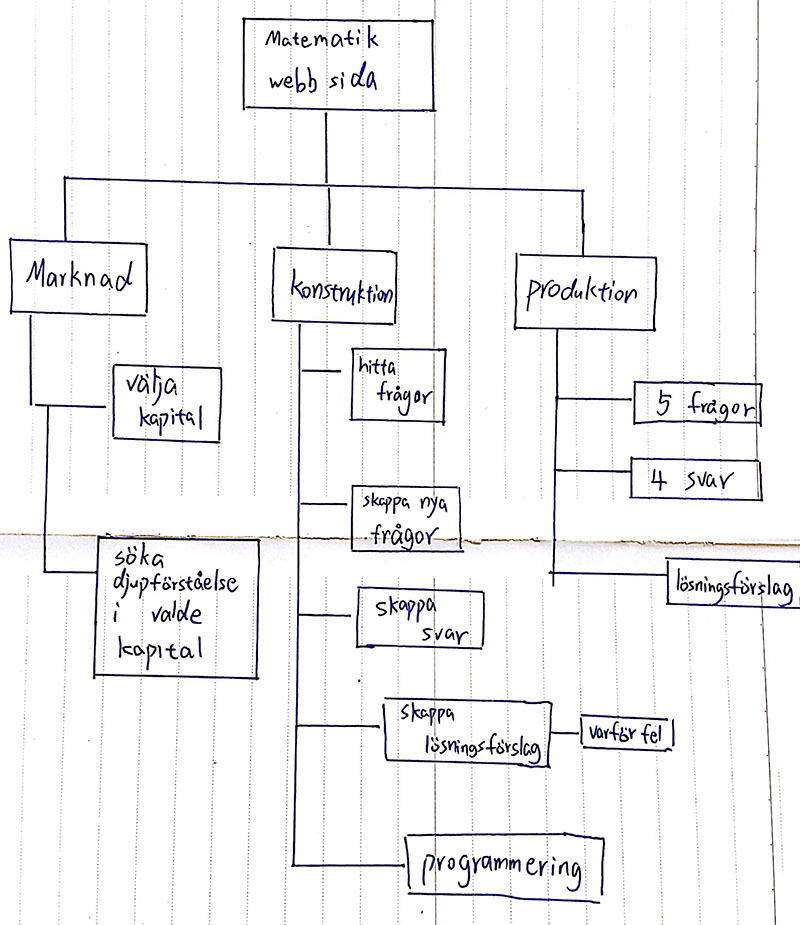 Matematik
webb sida
Marknad
konstruktion
produktion
välja
kapital
söka
djupförståelse
i valde
kapital
hitta
frågor
skappa nya
frågor
skappa
svar
skappa
lösningsförslag
varför fel
programmering
5 frågor
4 svar
lösningsförslag